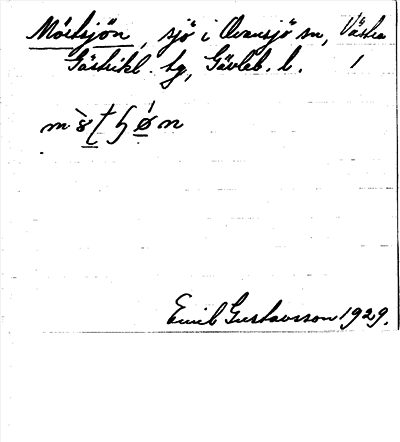 Mörtsjön, sjö i Ovansjö sn, Västra
Gästrikl. hg, Gävleb. l. 1
Emil Gustavsson 1929.